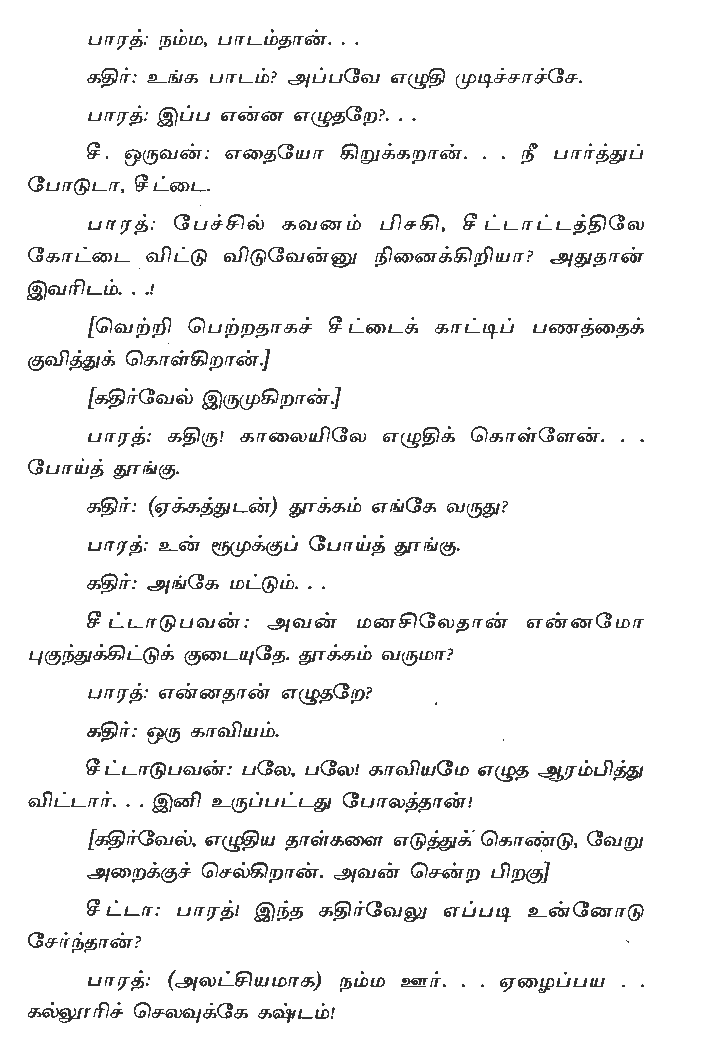 பாரத்: நம்ம, பாடம்தான். . .
கதிர்: உங்க பாடம்? அப்பவே எழுதி முடிச்சாச்சே.
பாரத்: இப்ப என்ன எழுதறே?. . .
சீ. ஒருவன்: எதையோ கிறுக்கறான். . . நீ பார்த்துப்
போடுடா, சீட்டை.
பாரத்: பேச்சில் கவனம் பிசகி, சீட்டாட்டத்திலே
கோட்டை விட்டு விடுவேன்னு நினைக்கிறியா? அதுதான்
இவரிடம். . .!
[வெற்றி பெற்றதாகச் சீட்டைக் காட்டிப் பணத்தைக்
குவித்துக் கொள்கிறான்.]
[கதிர்வேல் இருமுகிறான்.]
பாரத்: கதிரு! காலையிலே எழுதிக் கொள்ளேன். . .
போய்த் தூங்கு.
கதிர்: (ஏக்கத்துடன்) தூக்கம் எங்கே வருது?
பாரத்: உன் ரூமுக்குப் போய்த் தூங்கு.
கதிர்: அங்கே மட்டும். . .
சீட்டாடுபவன்: அவன் மனசிலேதான் என்னமோ
புகுந்துக்கிட்டுக் குடையுதே. தூக்கம் வருமா?
பாரத்: என்னதான் எழுதறே?
கதிர்: ஒரு காவியம்.
சீட்டாடுபவன்: பலே, பலே! காவியமே எழுத ஆரம்பித்து
விட்டார். . . இனி உருப்பட்டது போலத்தான்!
[கதிர்வேல், எழுதிய தாள்களை எடுத்துக் கொண்டு, வேறு
அறைக்குச் செல்கிறான். அவன் சென்ற பிறகு]
சீட்டா: பாரத்! இந்த கதிர்வேலு எப்படி உன்னோடு
சேர்ந்தான்?
பாரத்: (அலட்சியமாக) நம்ம ஊர். . . ஏழைப்பய . .
கல்லூரிச் செலவுக்கே கஷ்டம்!